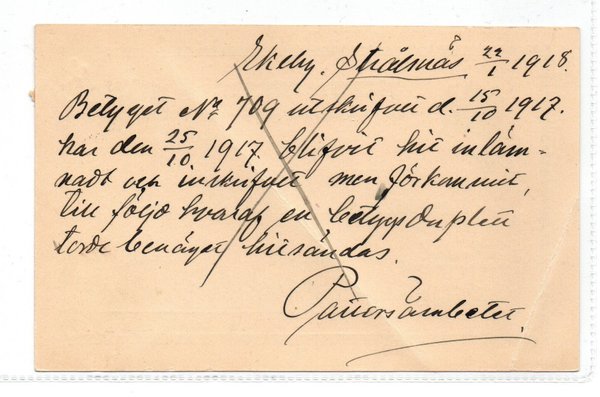 Ekeby, Strålsnäs 22/1 1918.
Betyget No 709 utskrifvet d. 15/10 1917.
har den 25/10 1917 blifvit hit inläm-
nadt och inskrifvet men förkommit,
till följd hvaraf en betygsduplett
torde benäget hitsändas.
Pastorsämbetet.